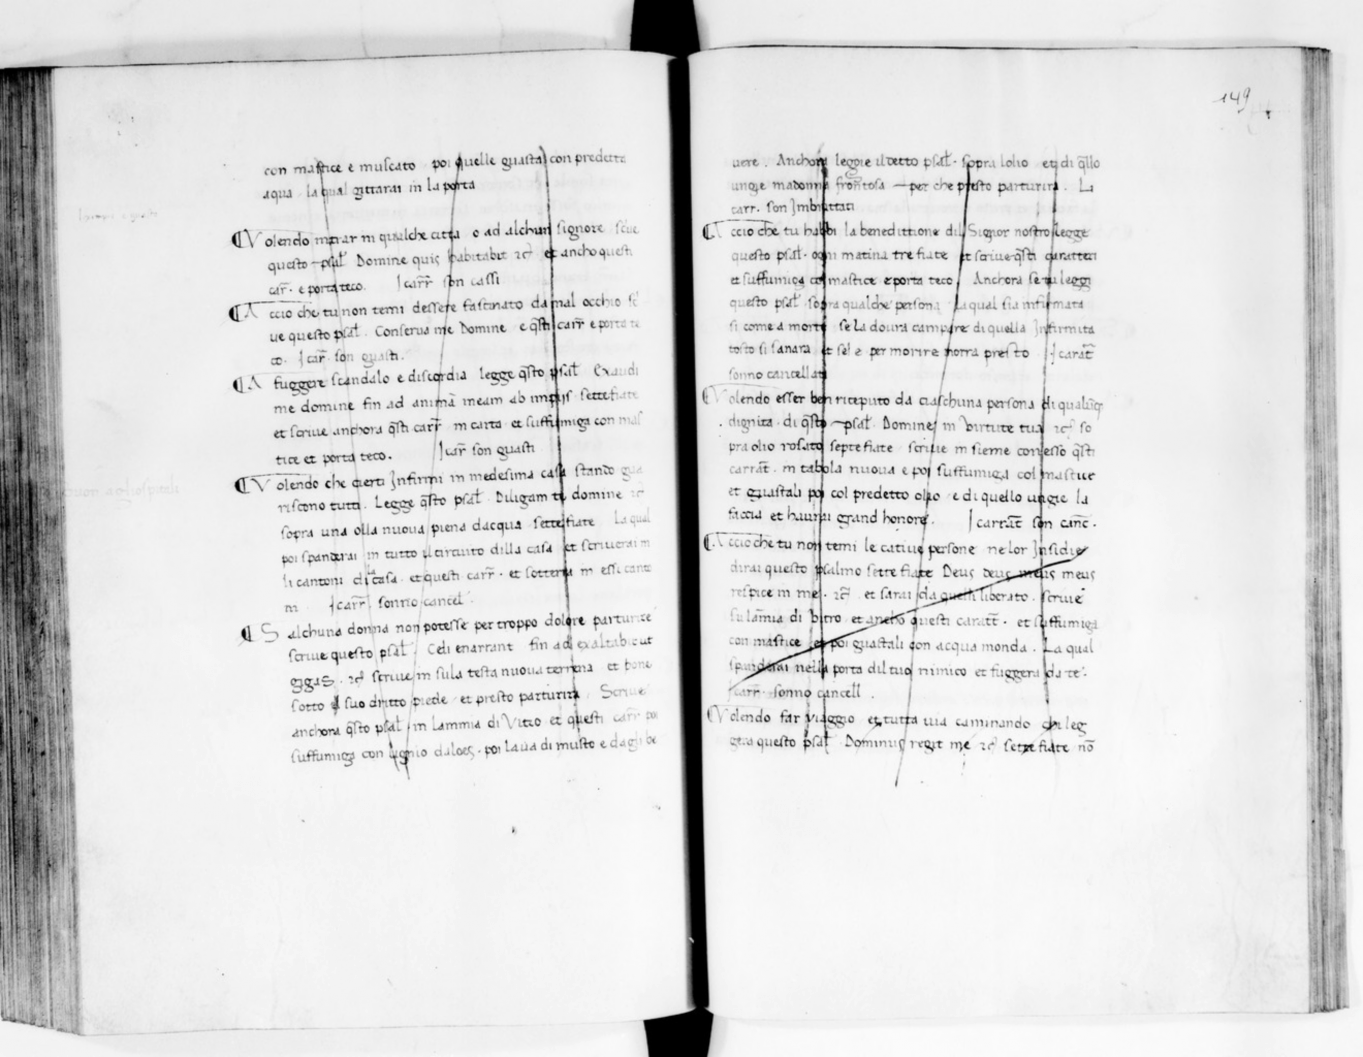 con mastice e muscato poi quelle guasta con predetta
aqua . la qual gittarai in la porta
¶ Volendo intrar in qualche citta o ad alchun signore scriue
questo psal̃ Domine quis habitabit ⁊c̃ et ancho questi
car̃. e porta teco. I carr̃ son cassi
¶ Accio che tu non temi dessere fascinato da mal occhio sc̃
ue questo psal̃. Conserua me Domine e q̃sti carr̃ e porta te
co. I car̃. son guasti.
¶ A fuggere scandalo e discordia legge q̃sto psal̃ Exaudi
me domine fin ad animã meam ab impijs settefiate
et scriue anchora q̃sti carr̃ in carta et suffumiga con mas
tice et porta teco. I car̃ son guasti
¶ Volendo che cierti Infirmi in medesima casa stando gua
riscono tutti. Legge q̃sto psal̃. Diligam te domine ⁊c̃
sopra una olla nuoua piena dacqua settefiate La qual
poi spanderai in tutto il circuito dilla casa et scriuerai in
li cantoni di la casa et questi carr̃. et sotterra in essi canto
ni I carr̃. sonno cancel̃.
¶ S alchuna donna non potesse per troppo dolore parturire
scriue questo psal̃. Celi enarrant fin ad exaltabit ut
gigas. ⁊c̃ scriue in sula testa nuoua terrena et pone
sotto il suo dritto piede et presto parturira Scriue
anchora q̃sto psal̃ in lammia di Vitro et questi carr̃ poi
suffumiga con lignio daloes. poi laua di musto e dagli be
149
uere. Anchora leggie il detto psal̃. sopra lolio et di q̃llo
ungie madonna fron̄tosa per che presto parturira. Li
carr. son Imbrattati
¶ Accio che tu habbi la benedittione dil Signor nostro legge
questo psal̃. ogni matina tre fiate et scriue q̃sti caratteri
et suffumiga col mastice e porta teco Anchora se tu leggi
questo psal̃ sopra qualche persona la qual sia infirmata
si come a morte se la doura campare di quella Infirmita
tosto si sanara et sel e per morire morra presto I carat̃
sonno cancellati
¶ Volendo esser ben riceputo da ciaschuna persona di qualũq̃
dignita. di q̃sto psal̃. Domine in virtute tua ⁊c̃ so
pra olio rosato septe fiate scriue in sieme con esso q̃sti
carrat̃. in tabola nuoua e poi suffumiga col mastice
et guastali poi col predetto olio e di quello ungie la
faccia et haurai grand honore. I carrat̃ son canc̃.
¶ Accio che tu non temi le catiue persone ne lor Insidie
dirai questo psalmo sette fiate Deus deus meus meus
respice in me. ⁊c̃ et sarai da quelli liberato. scriue
su lam̃ia di bitro et ancho questi carat̃t. et suffumiga
con mastice et poi guastali con acqua monda. La qual
spanderai nella porta dil tuo inimico et fuggera da te.
I carr̃. sonno cancell.
¶ Volendo far viaggio et tutta uia caminando chi leg
gera questo psal̃ Dominus regit me ⁊c̃ sette fiate nõ